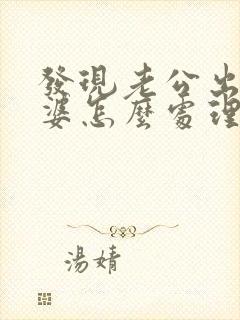 發現老公出
婆怎麼處理
湯婧